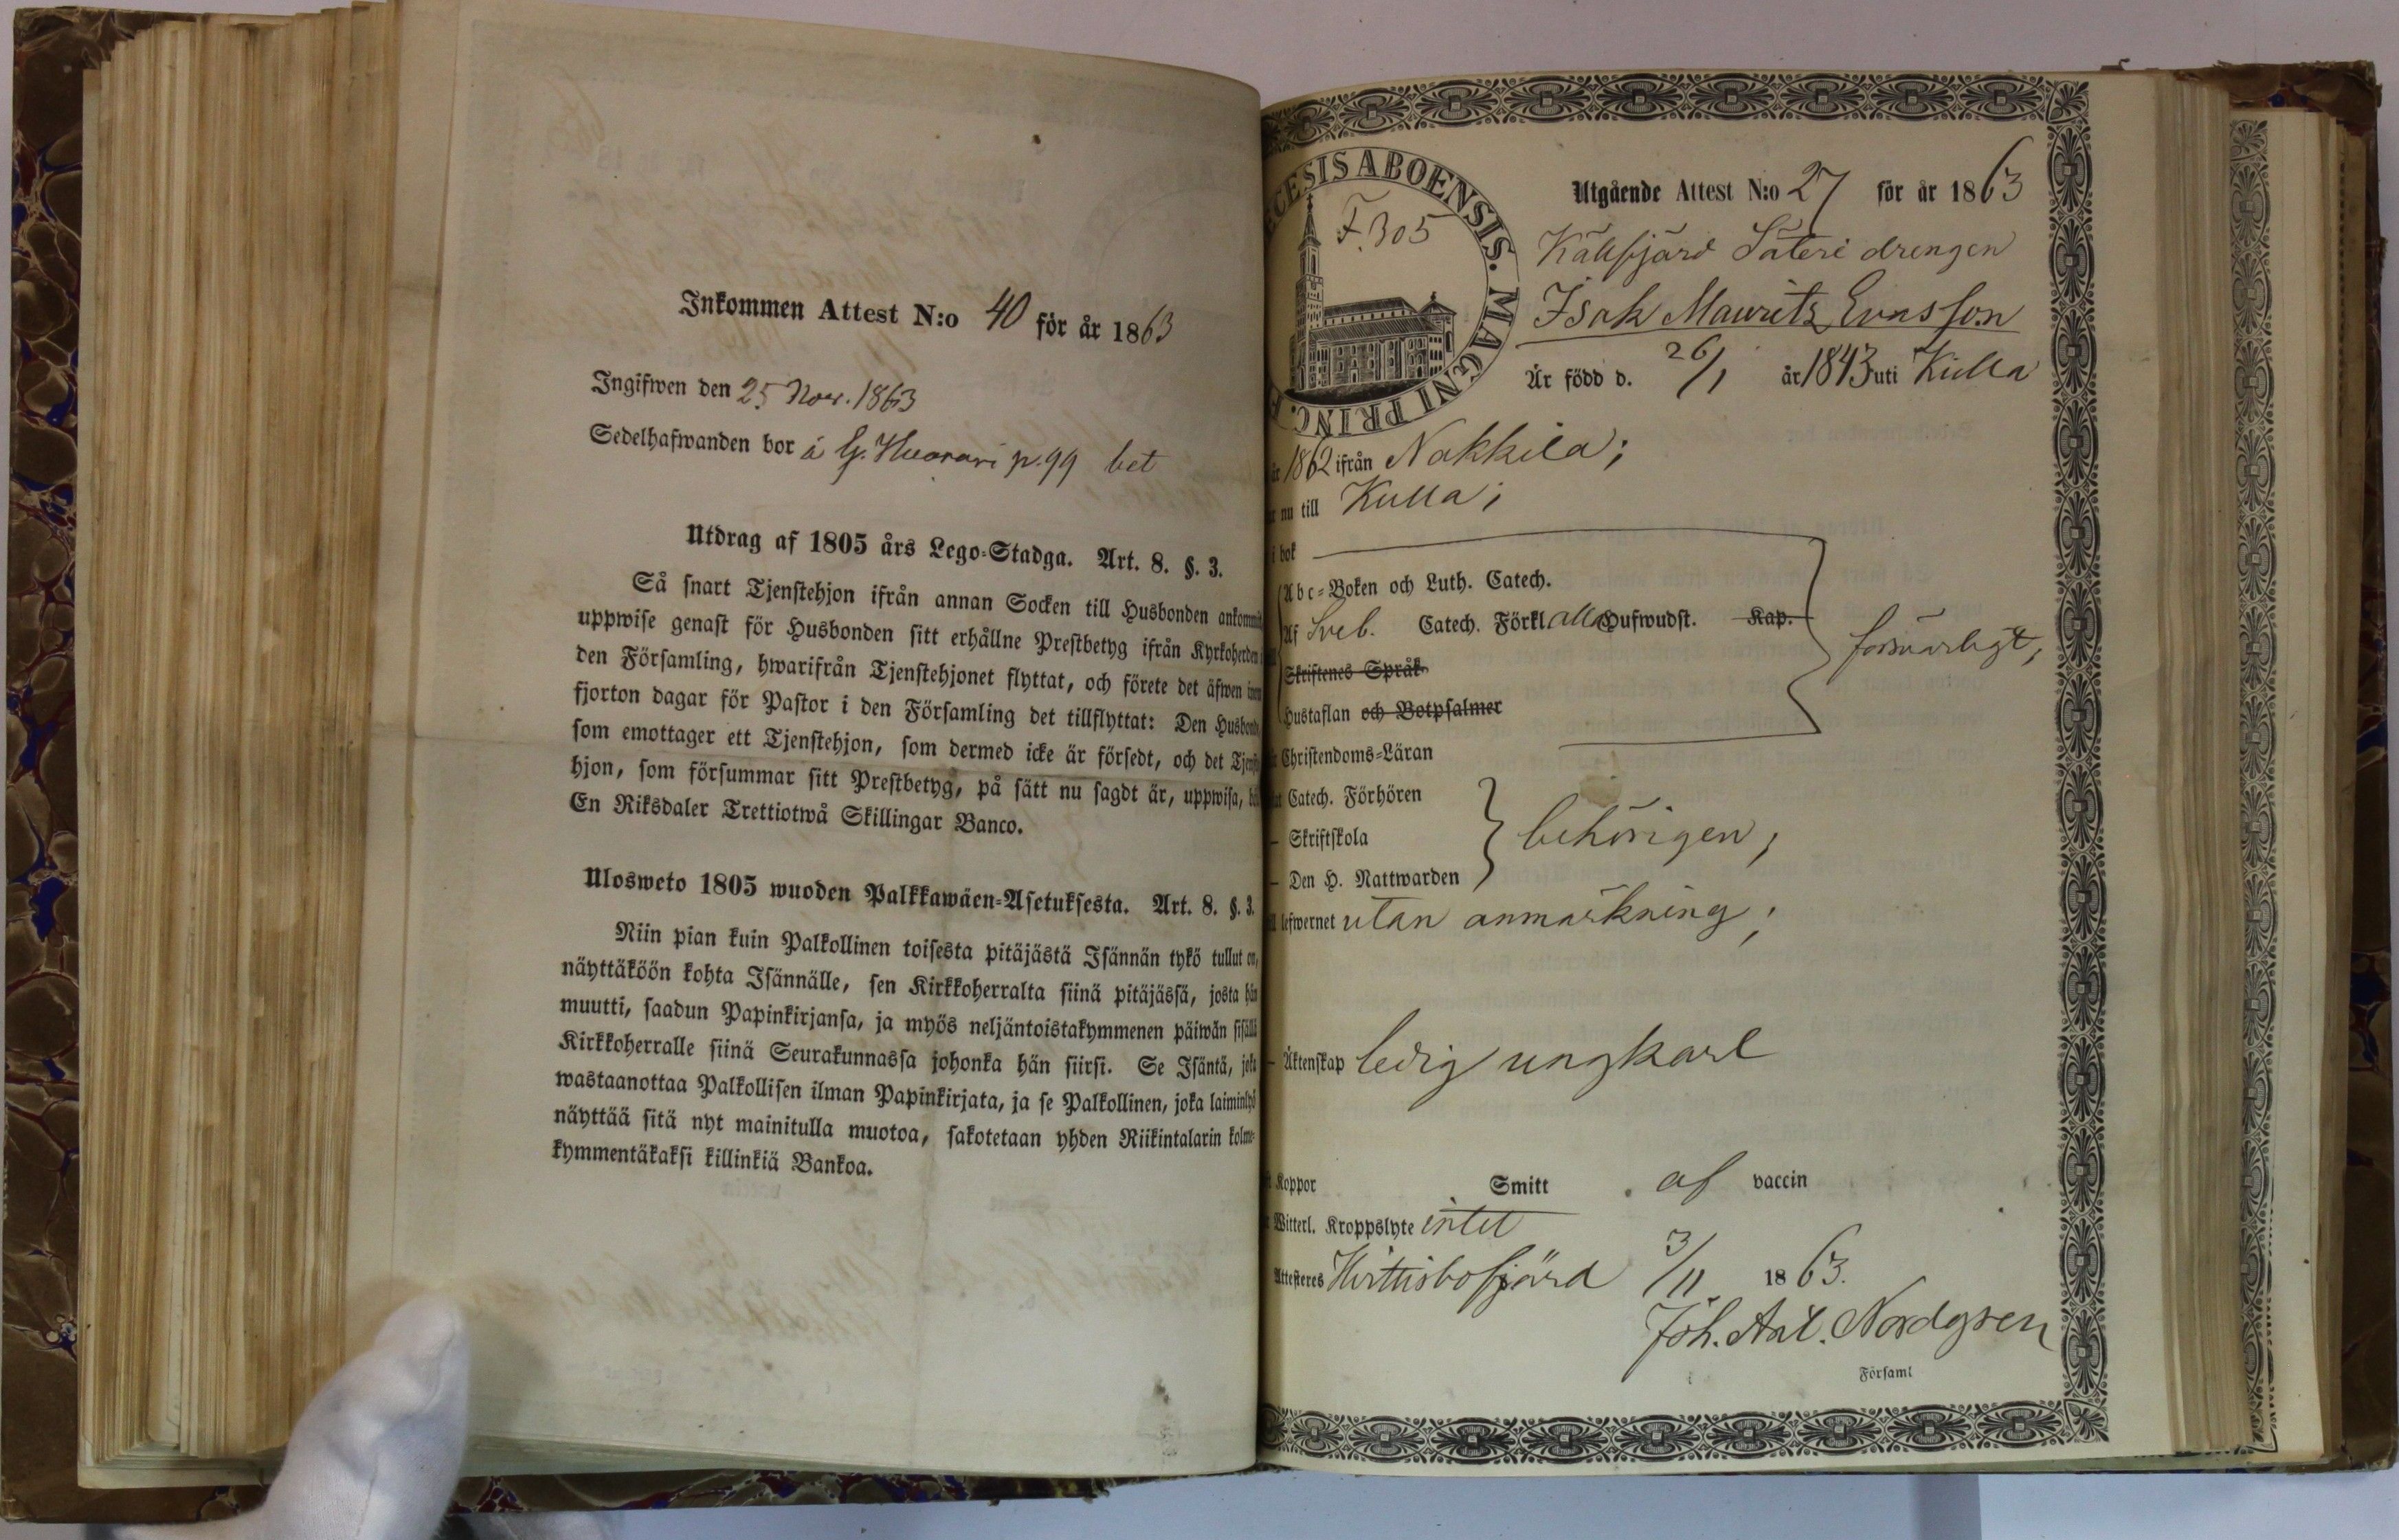 Inkommen Attest N:o 40 för år 1863
Ingifwen den 25 Nov. 1863
Sedelhafwanden bor á G. Huorari p. 99 bet
Utdrag af 1805 års Lego-Stadga. Art. 8. §. 3.
Så snart Tjenstehjon ifrån annan Socken till Husbonden ankommit
uppwise genast för Husbonden sitt erhållne Prestbetyg ifrån Kyrkoherden i
den Församling, hwarifrån Tjenstehjonet flyttat, och förete det äfwen inom
fjorton dagar för Pastor i den Församling det tillflyttat: Den Husbonde,
som emottager ett Tjenstehjon, som dermed icke är försedt, och det Tjenste
hjon, som försummar sitt Prestbetyg, på sätt nu sagdt är, uppwisa, bö
En Riksdaler Trettiotwå Skillingar Banco.
Ulosweto 1805 wuoden Palkkawäen-Asetuksesta. Art. 8. §. 3.
Niin pian kuin Palkollinen toisesta pitäjästä Isännän tykö tullut on,
näyttäköön kohta Isännälle, sen Kirkkoherralta siinä pitäjässä, josta hän
muutti, saadun Papinkirjansa, ja myös neljäntoistakymmenen päiwän sisällä
Kirkkoherralle siinä Seurakunnassa johonka hän siirsi. Se Isäntä, joka
wastaanottaa Palkollisen ilman Papinkirjata, ja se Palkollinen, joka laiminlyö
näyttää sitä nyt mainitulla muotoa, sakotetaan yhden Riikintalarin kolme-
kymmentäkaksi killinkiä Bankoa.
CESIS ABOENSIS. MAGNI PRINC. F
F. 305
Utgående Attest N:o 27 för år 1863
Källfjärd Säteri drengen
Isak Mauritz Evasson
Är född d. 26/1 år 1843 uti Kulla
år 1862 ifrån Nakkila;
nu till Kulla;
i bok
Abc-Boken och Luth. Catech.
Af Sveb. Catech. Förkl alla Hufwudst. Kap.
Skriftenes Språk
Hustaflan och Botpsalmer
försvarligt,
Christendoms-Läran
Catech. Förhören
– Skriftskola
– Den H. Nattwarden
behörigen,
lefwernet utan anmärkning,
– Äktenskap ledig ungkarl
Koppor Smitt af vaccin
Witterl. Kroppslyte intet
Attesteres Hvittisbofjärd 3/11 1863.
Joh. Axl. Nordgren
Församl